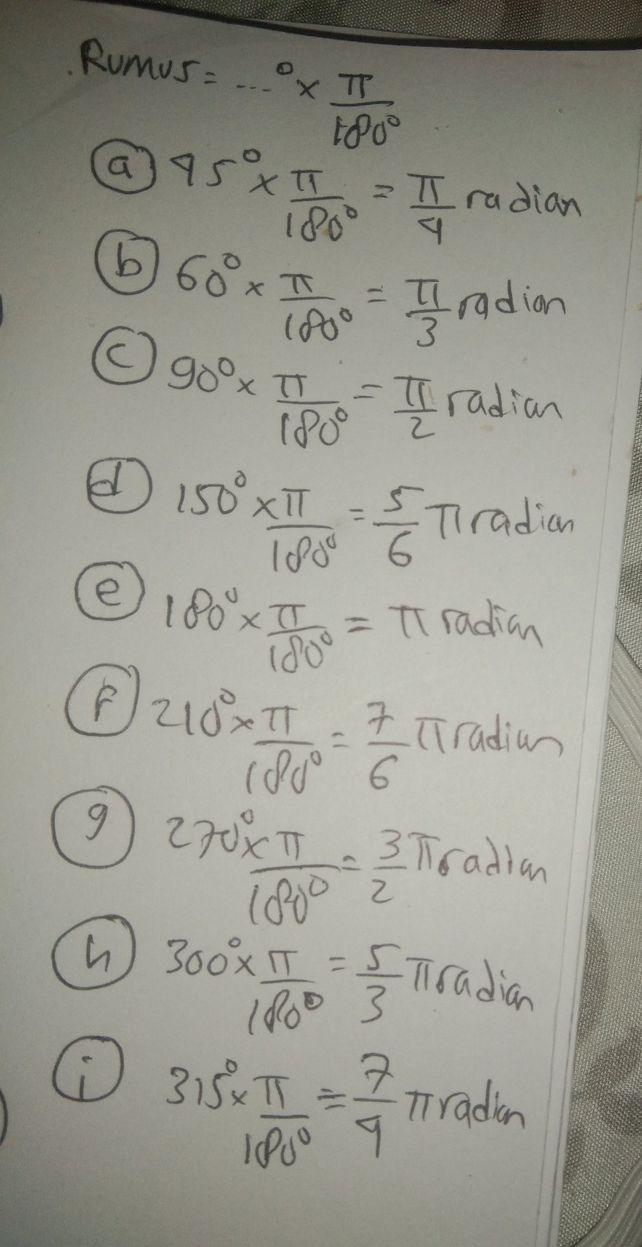 Rumus = ...° × π/180°
ⓐ 45° × π/180° = π/4 radian
ⓑ 60° × π/180° = π/3 radian
ⓒ 90° × π/180° = π/2 radian
ⓓ 150° × π/180° = 5/6 π radian
ⓔ 180° × π/180° = π radian
ⓕ 210° × π/180° = 7/6 π radian
ⓖ 270° × π/180° = 3/2 π radian
ⓗ 300° × π/180° = 5/3 π radian
ⓘ 315° × π/180° = 7/4 π radian